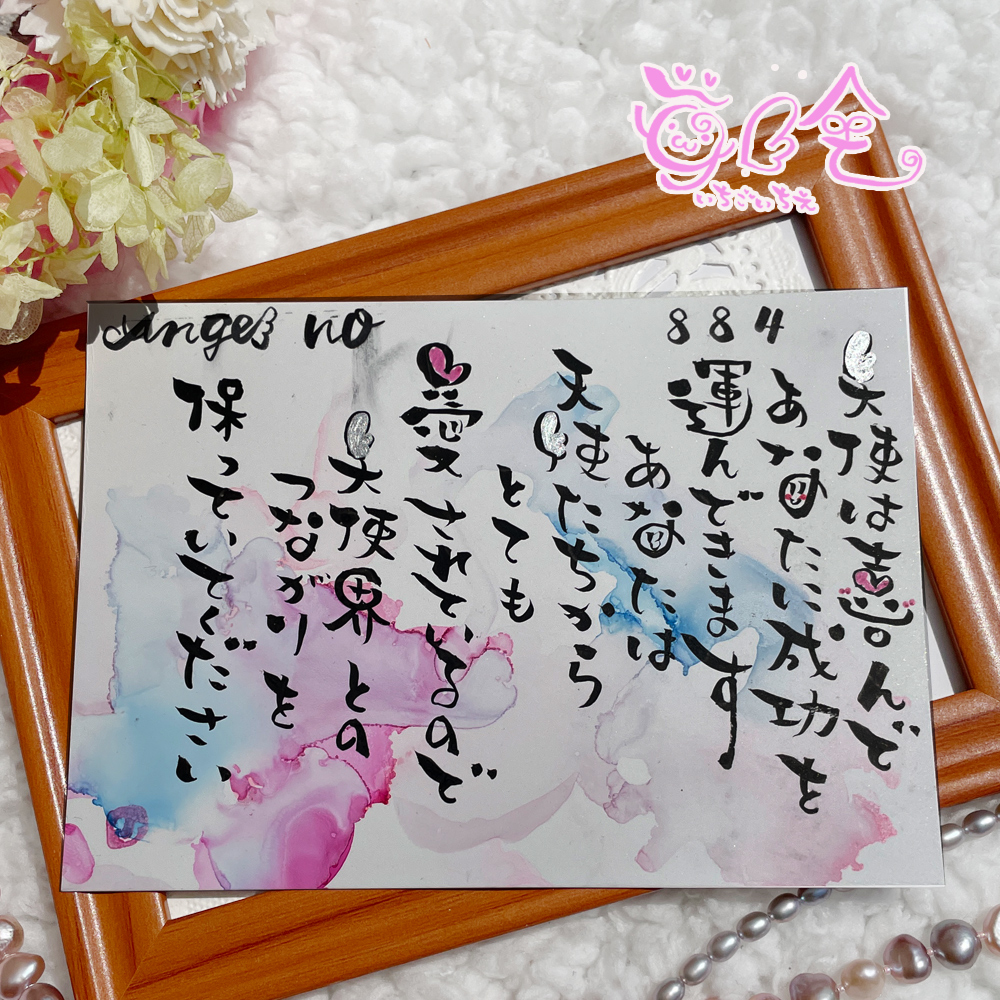 Angel no
884
天使は喜んで
あなたに成功を
運んできます
あなたは
天使たちから
とても
愛されているので
天使界との
つながりを
保っていてください
いちごいちえ